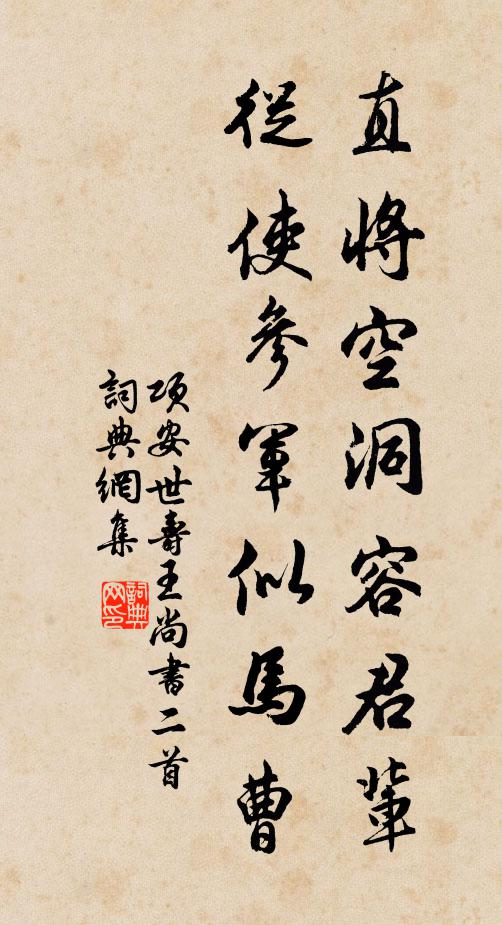 直將空洞容君輩
從使參軍似馬曹
項安世壽王尚書二首
詞典網集
詞典网印